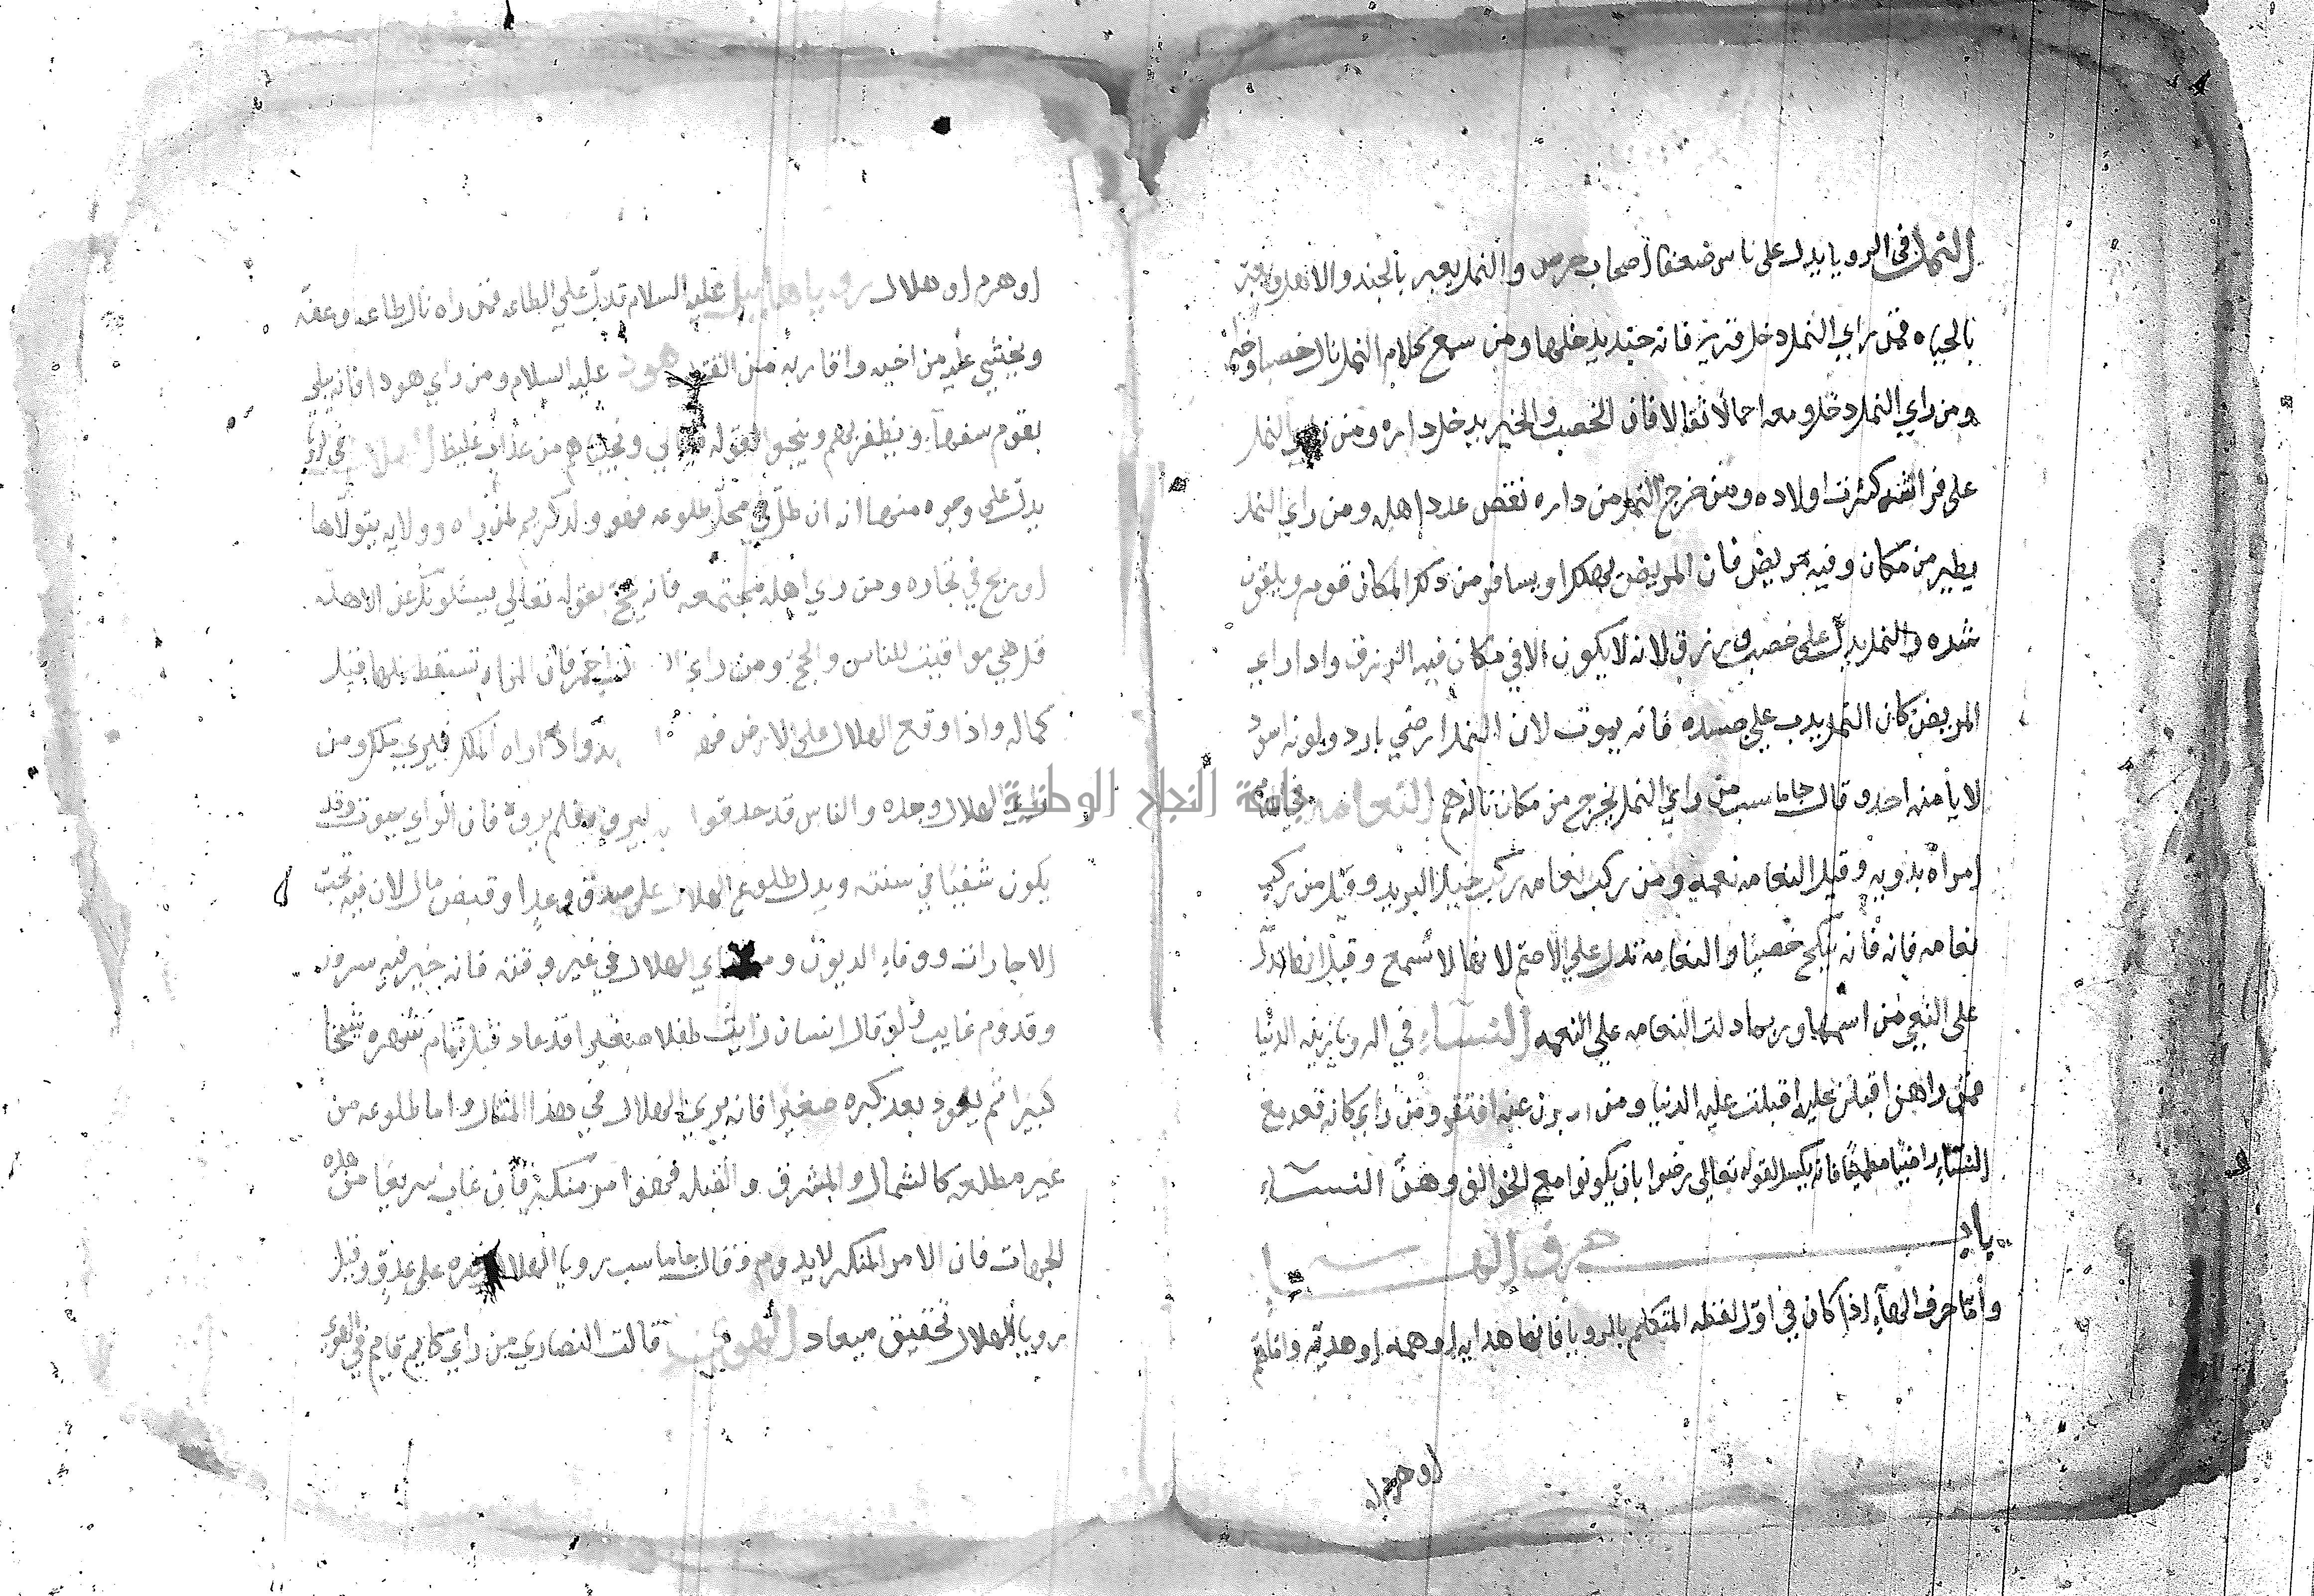 النمل في الرويا يدل على ناس ضعفا اصحاب حرص والنمل يعبر بالجند والاهل ويعبر
بالحياه فمن راي النمل دخل قريه فانه جند يدخلها ومن سمع كلام النمل نال خصبا وخيرا
ومن راي النمل دخل ومعه احمالا ثقالا فان الخصب والخير يدخل داره ومن راي النمل
على فراشه كثرت اولاده ومن خرج النمل من داره نقص عدد اهله ومن راي النمل
يطير من مكان وفيه مريض فان المريض يهلك او يسافر من ذلك المكان قوم ويلقون
شده والنمل يدل على خصب ورزق لانه لا يكون الا في مكان فيه الرزق واذا راي
المريض كان النمل يدب علي جسده فانه يموت لان النمل ارضي بارد ولونه اسود
لا يامنه احد وقال جاماسب من راي النمل يخرج من مكان ناله هم النعامه في المنام
امراة بدويه وقيل النعامه نعمه ومن ركب نعامه ركب خيل البريد وقيل من ركب
نعامه فانه فانه ينكح خصيا والنعامه تدل علي الاصم لانها لا تسمع وقيل انها تدل
على النعي من اسمها وربما دلت النعامه علي النعمه النساء في الرويا زينه الدنيا
فمن راهن اقبلن عليه اقبلت عليه الدنيا ومن ادبرن عنه افتقر ومن راي كانه قعد مع
النساء راضيا مطمينا فانه يكسل لقوله تعالى رضوا بان يكونوا مع الخوالف وهن النساء
باب حرف الهاء
وأمّا حرف الهآء اذا كان في اوّل لفظه المتكلم بالرويا فانها هدايه او همه او هديه واما هم
او هرم او
او هرم او هلال رويا هابيل عليه السلام تدل علي الطاعه فمن راه نال طاعه وعفه
ويخشي عليه من اخيه واقاربه من القتل هود عليه السلام ومن راي هودا فانه يبلي
بقوم سفهآء ويظفر بهم وينجو لقوله تعالي ونجيناهم من عذاب غليظ الهلال في الرويا
يدل على وجوه منها انه ان طل في محل طلوعه فهو ولد كريم لمن راه وولايه يتولاها
او ربح في تجاره ومن راي اهله مجتمعه فانه يحج لقوله تعالي يسئلونك عن الاهله
قل هي مواقيت للناس والحج ومن راي احمر فان المراه تسقط حملها قبل
كماله واذا وقع الهلال على الارض فهو واذا راه الملك فيري ملك ومن
راي الهلال وحده والناس قد حدقوا ليروه فلم يروه فان الراي يموت وقد
يكون شقيا في سنته ويدل طلوع الهلال على صدق وعد او قبض مال لان فيه تجب
الاجارات ووفاء الديون ومن راي الهلال في غير وقته فانه خير فيه سرور
وقدوم غايب ولو قال انسان رايت طفلا صغيرا قد عاد قبل تمام شهره شيخا
كبيرا ثم يعود بعد كبره صغيرا فانه يري الهلال في هذا المثال واما طلوعه من
غير مطلعه كالشمال والمشرق والقبله فهو امور منكره فان غاب سريعا من هذه
الجهات فان الامر المنكر لا يدوم وقال جاماسب رويا الهلال علي عدو وقيل
رويا الهلال تحقيق ميعاد قالت النصاري من راي كانه قايم في الهوي
جامعة النجاح الوطنية